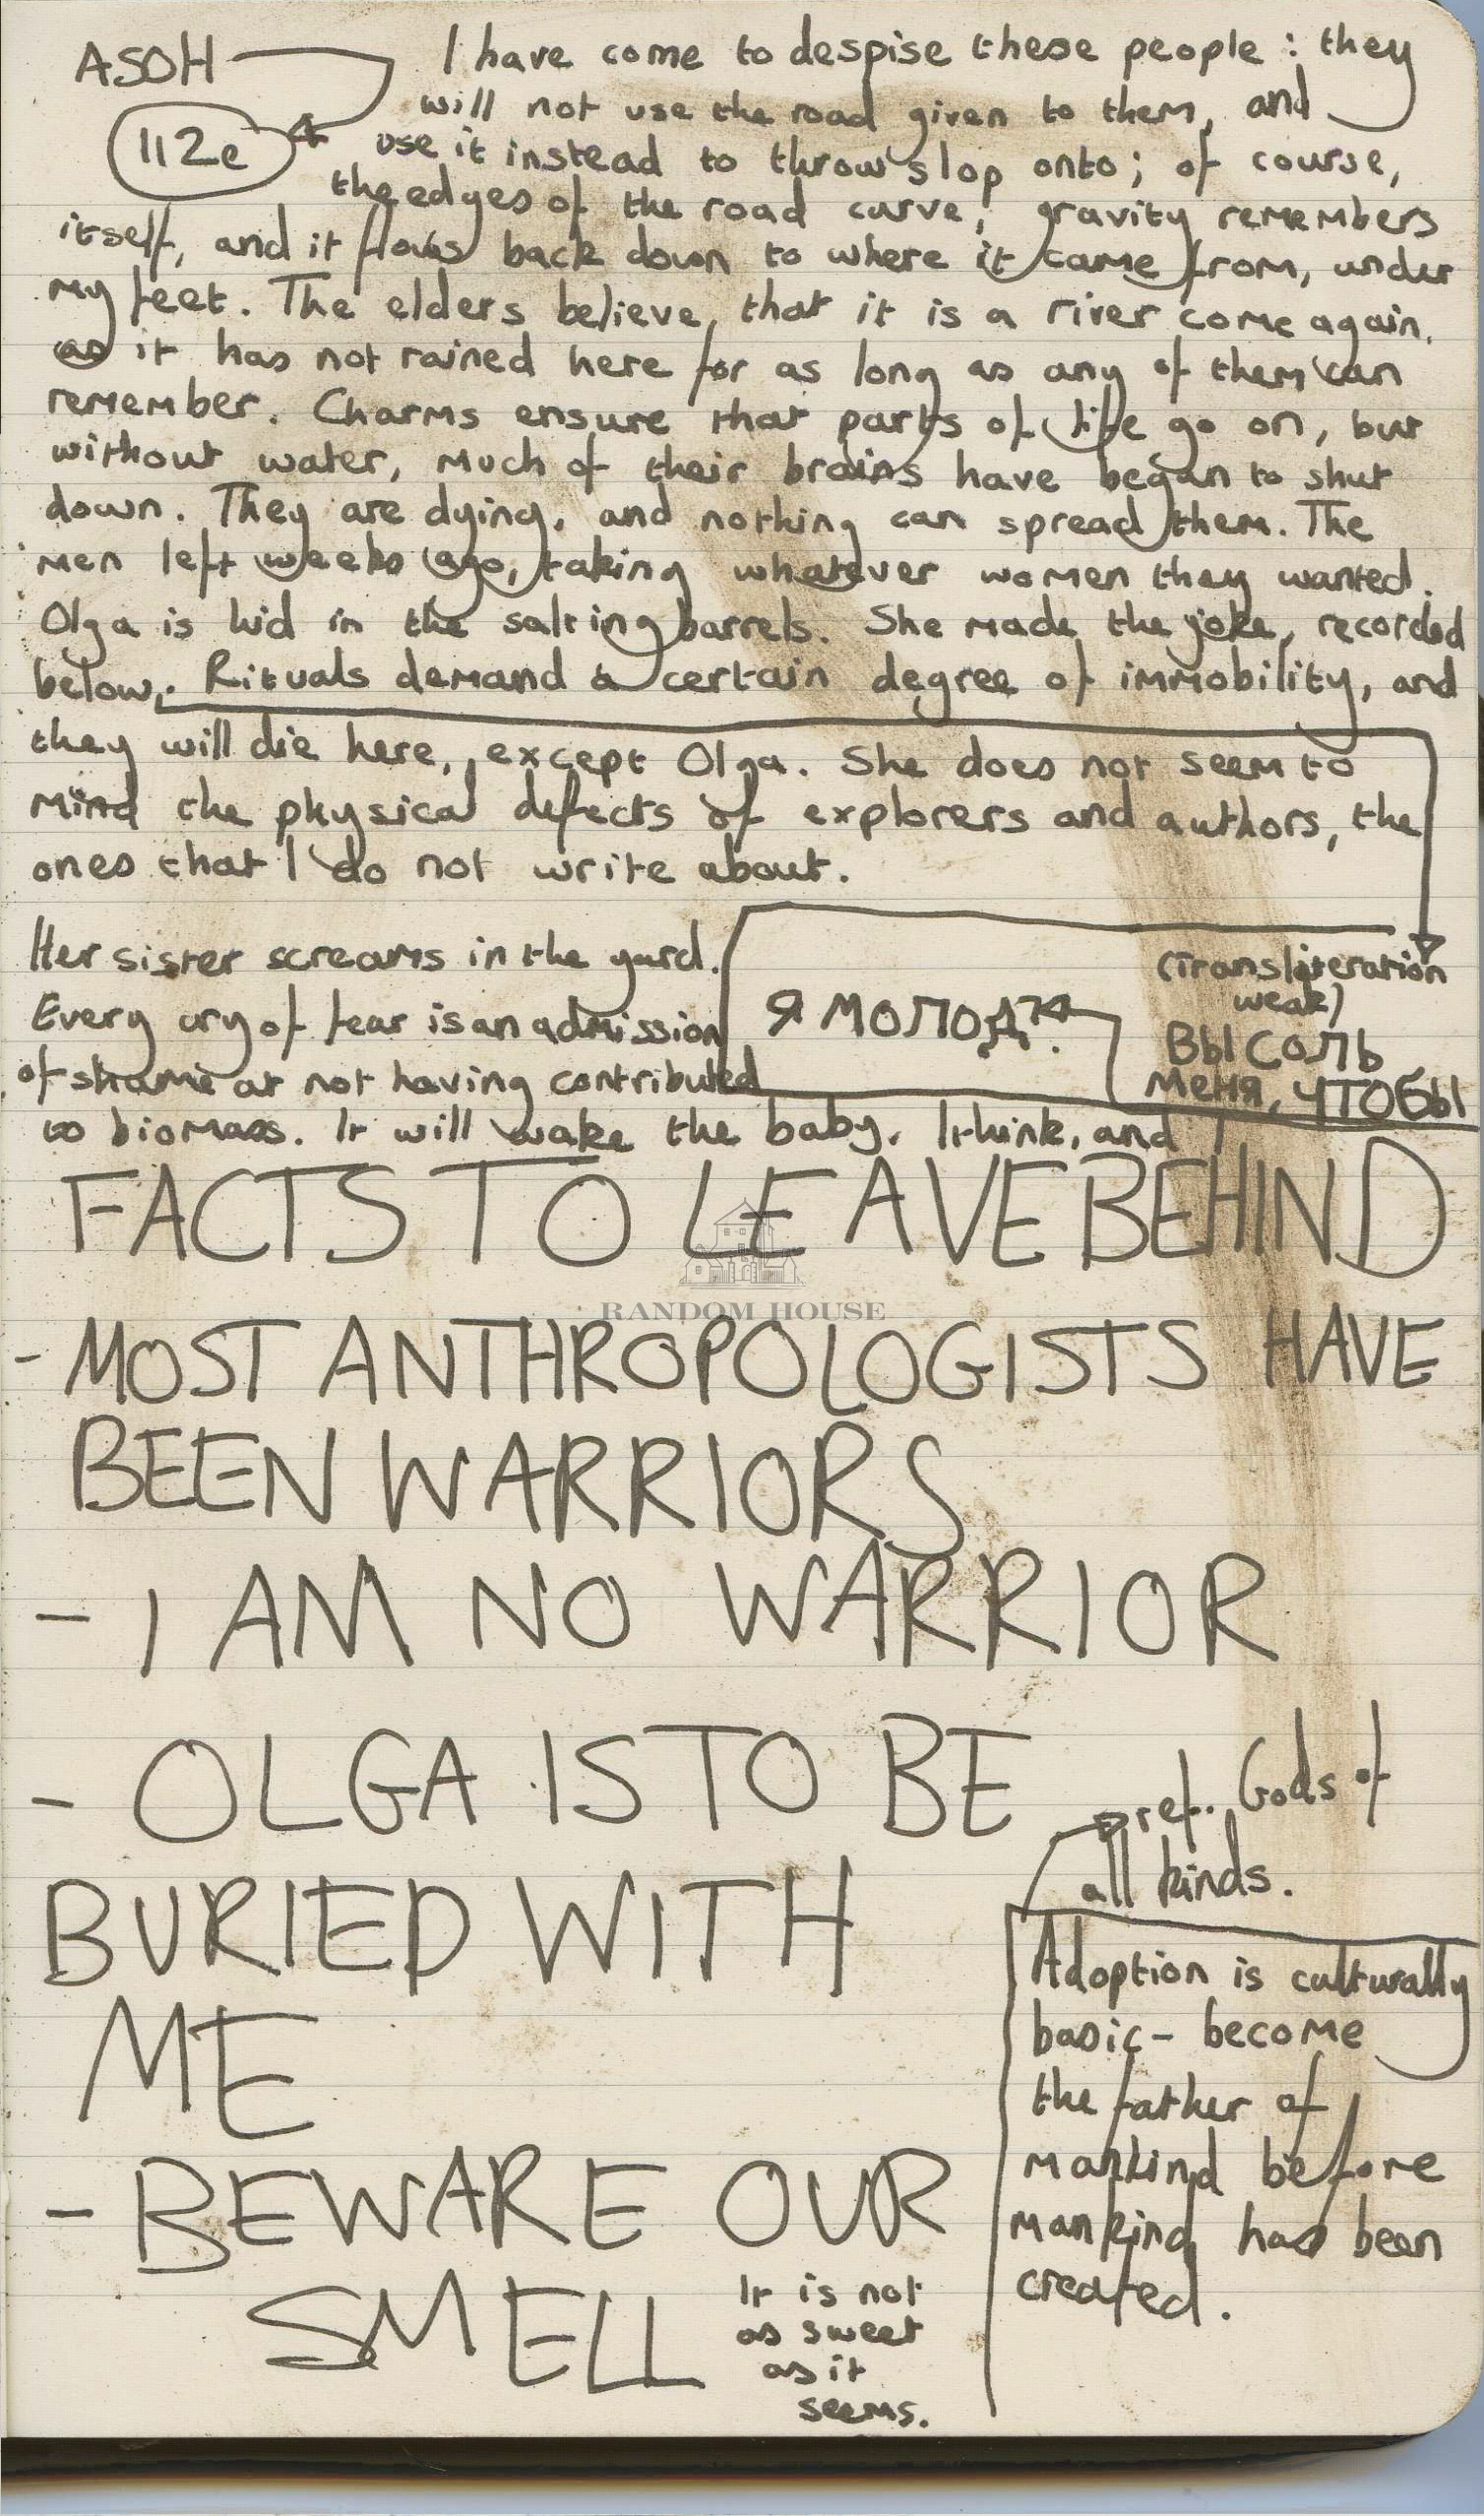 ASOH
112e
I have come to despise these people: they
will not use the road given to them, and
use it instead to throw slop onto; of course,
the edges of the road curve, gravity remembers
itself, and it flows back down to where it came from, under
my feet. The elders believe, that it is a river come again,
as it has not rained here for as long as any of them can
remember. Charms ensure that parts of life go on, but
without water, much of their brains have began to shut
down. They are dying, and nothing can spread them. The
men left weeks ago, taking whatever women they wanted.
Olga is hid in the salting barrels. She made the joke, recorded
below. Rituals demand a certain degree of immobility, and
they will die here, except Olga. She does not seem to
mind the physical defects of explorers and authors, the
ones that I do not write about.
Her sister screams in the yard.
Every cry of fear is an admission
of shame at not having contributed
to biomass. It will wake the baby, I think, and
(Transliteration
weak)
Вы соль
меня, чтобы
Я молод?
FACTS TO LEAVE BEHIND
RANDOM HOUSE
- MOST ANTHROPOLOGISTS HAVE
BEEN WARRIORS
- I AM NO WARRIOR
- OLGA IS TO BE
BURIED WITH
ME
- BEWARE OUR
SMELL
It is not
as sweet
as it
seems.
ref. Gods of
all kinds.
Adoption is culturally
basic - become
the father of
mankind before
mankind has been
created.